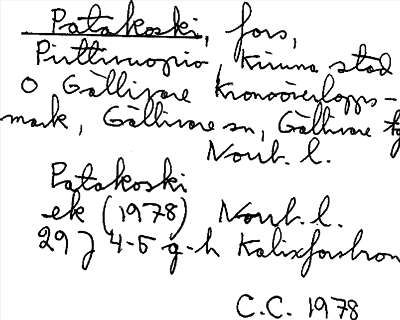 Patakoski, fors,
Pirttivuopio, Kiruna stad
o Gällivare kronoöverlopps-
mark, Gällivare sn, Gällivare
Norrb. l.
Patakoski
ek (1978) Norrb. l.
29 J 4-5 g-h Kalixforsbron
C.C. 1978